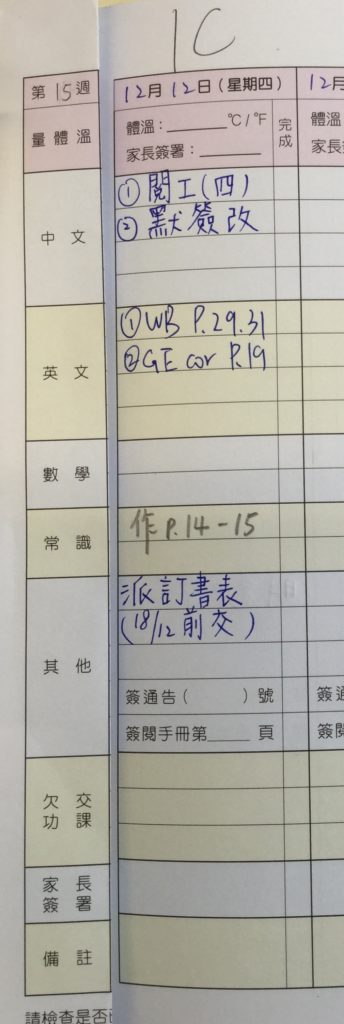 1C
第15週
12月12日(星期四)
12月
量體溫
體溫：______°C/°F
完成
體溫
家長簽署：______
家長
中文
①閱工(四)
②默簽改
英文
①WB P.29.31
②GE cor P.19
數學
常識
作 P.14-15
其他
派訂書表
(18/12前交)
簽通告( )號
簽通
簽閱手冊第____頁
簽閱
欠交功課
家長簽署
備註
請檢查是否